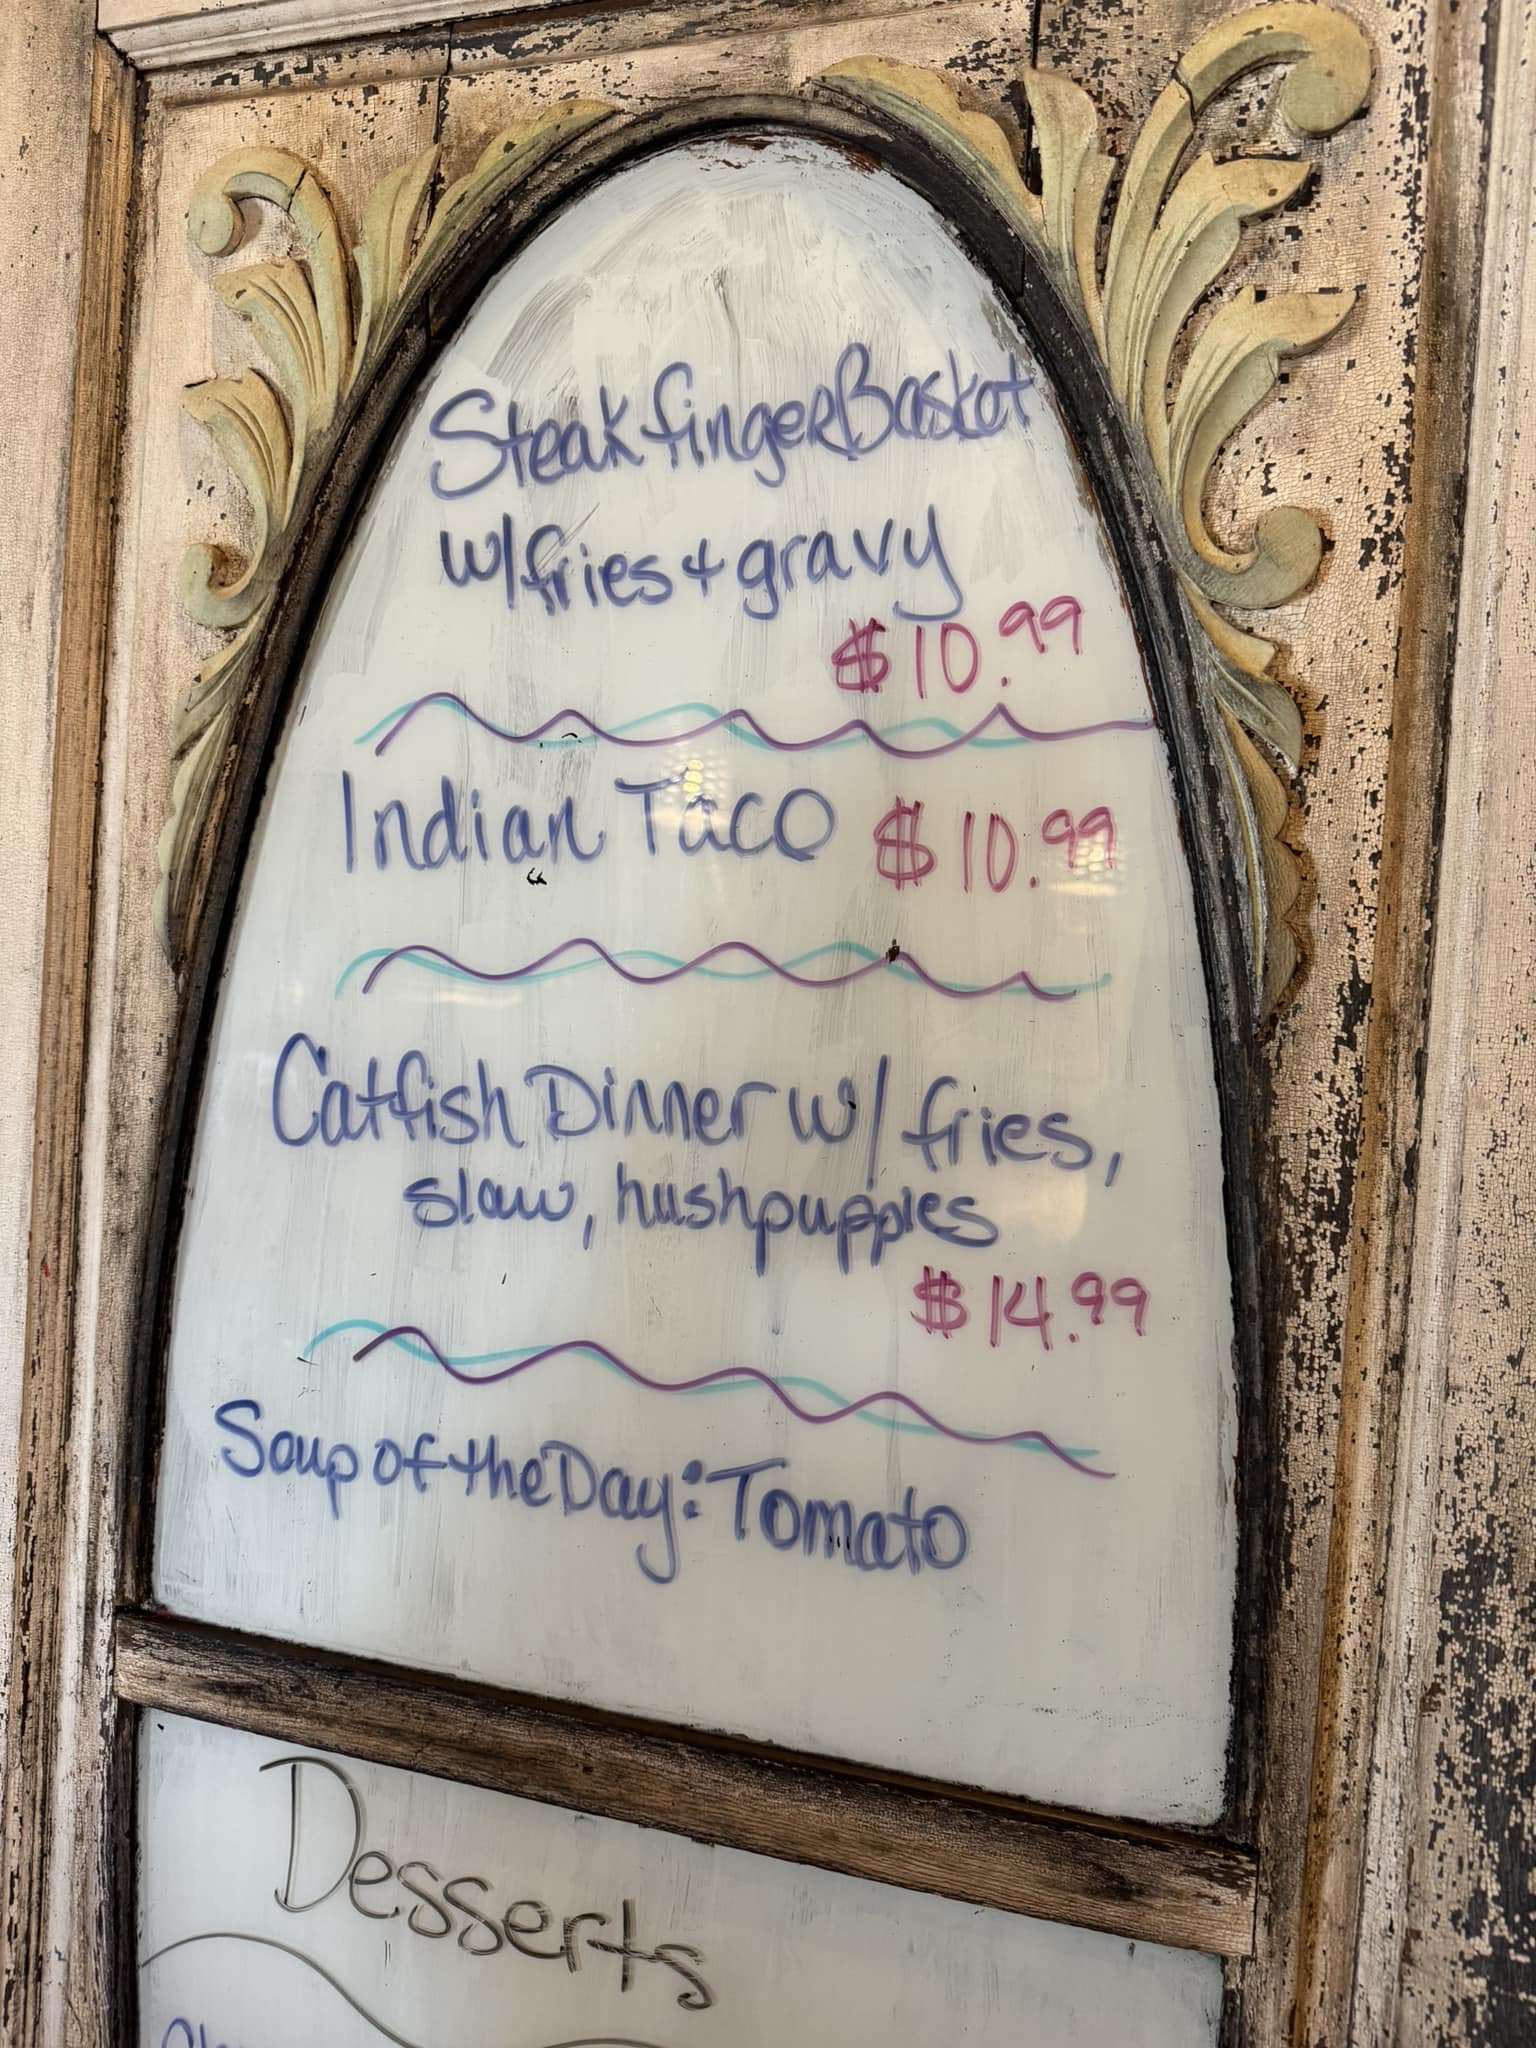 Steak finger Basket
w/fries + gravy
$10.99
Indian Taco $10.99
Catfish Dinner w/ fries,
slaw, hushpuppies
$14.99
Soup of the Day: Tomato
Desserts